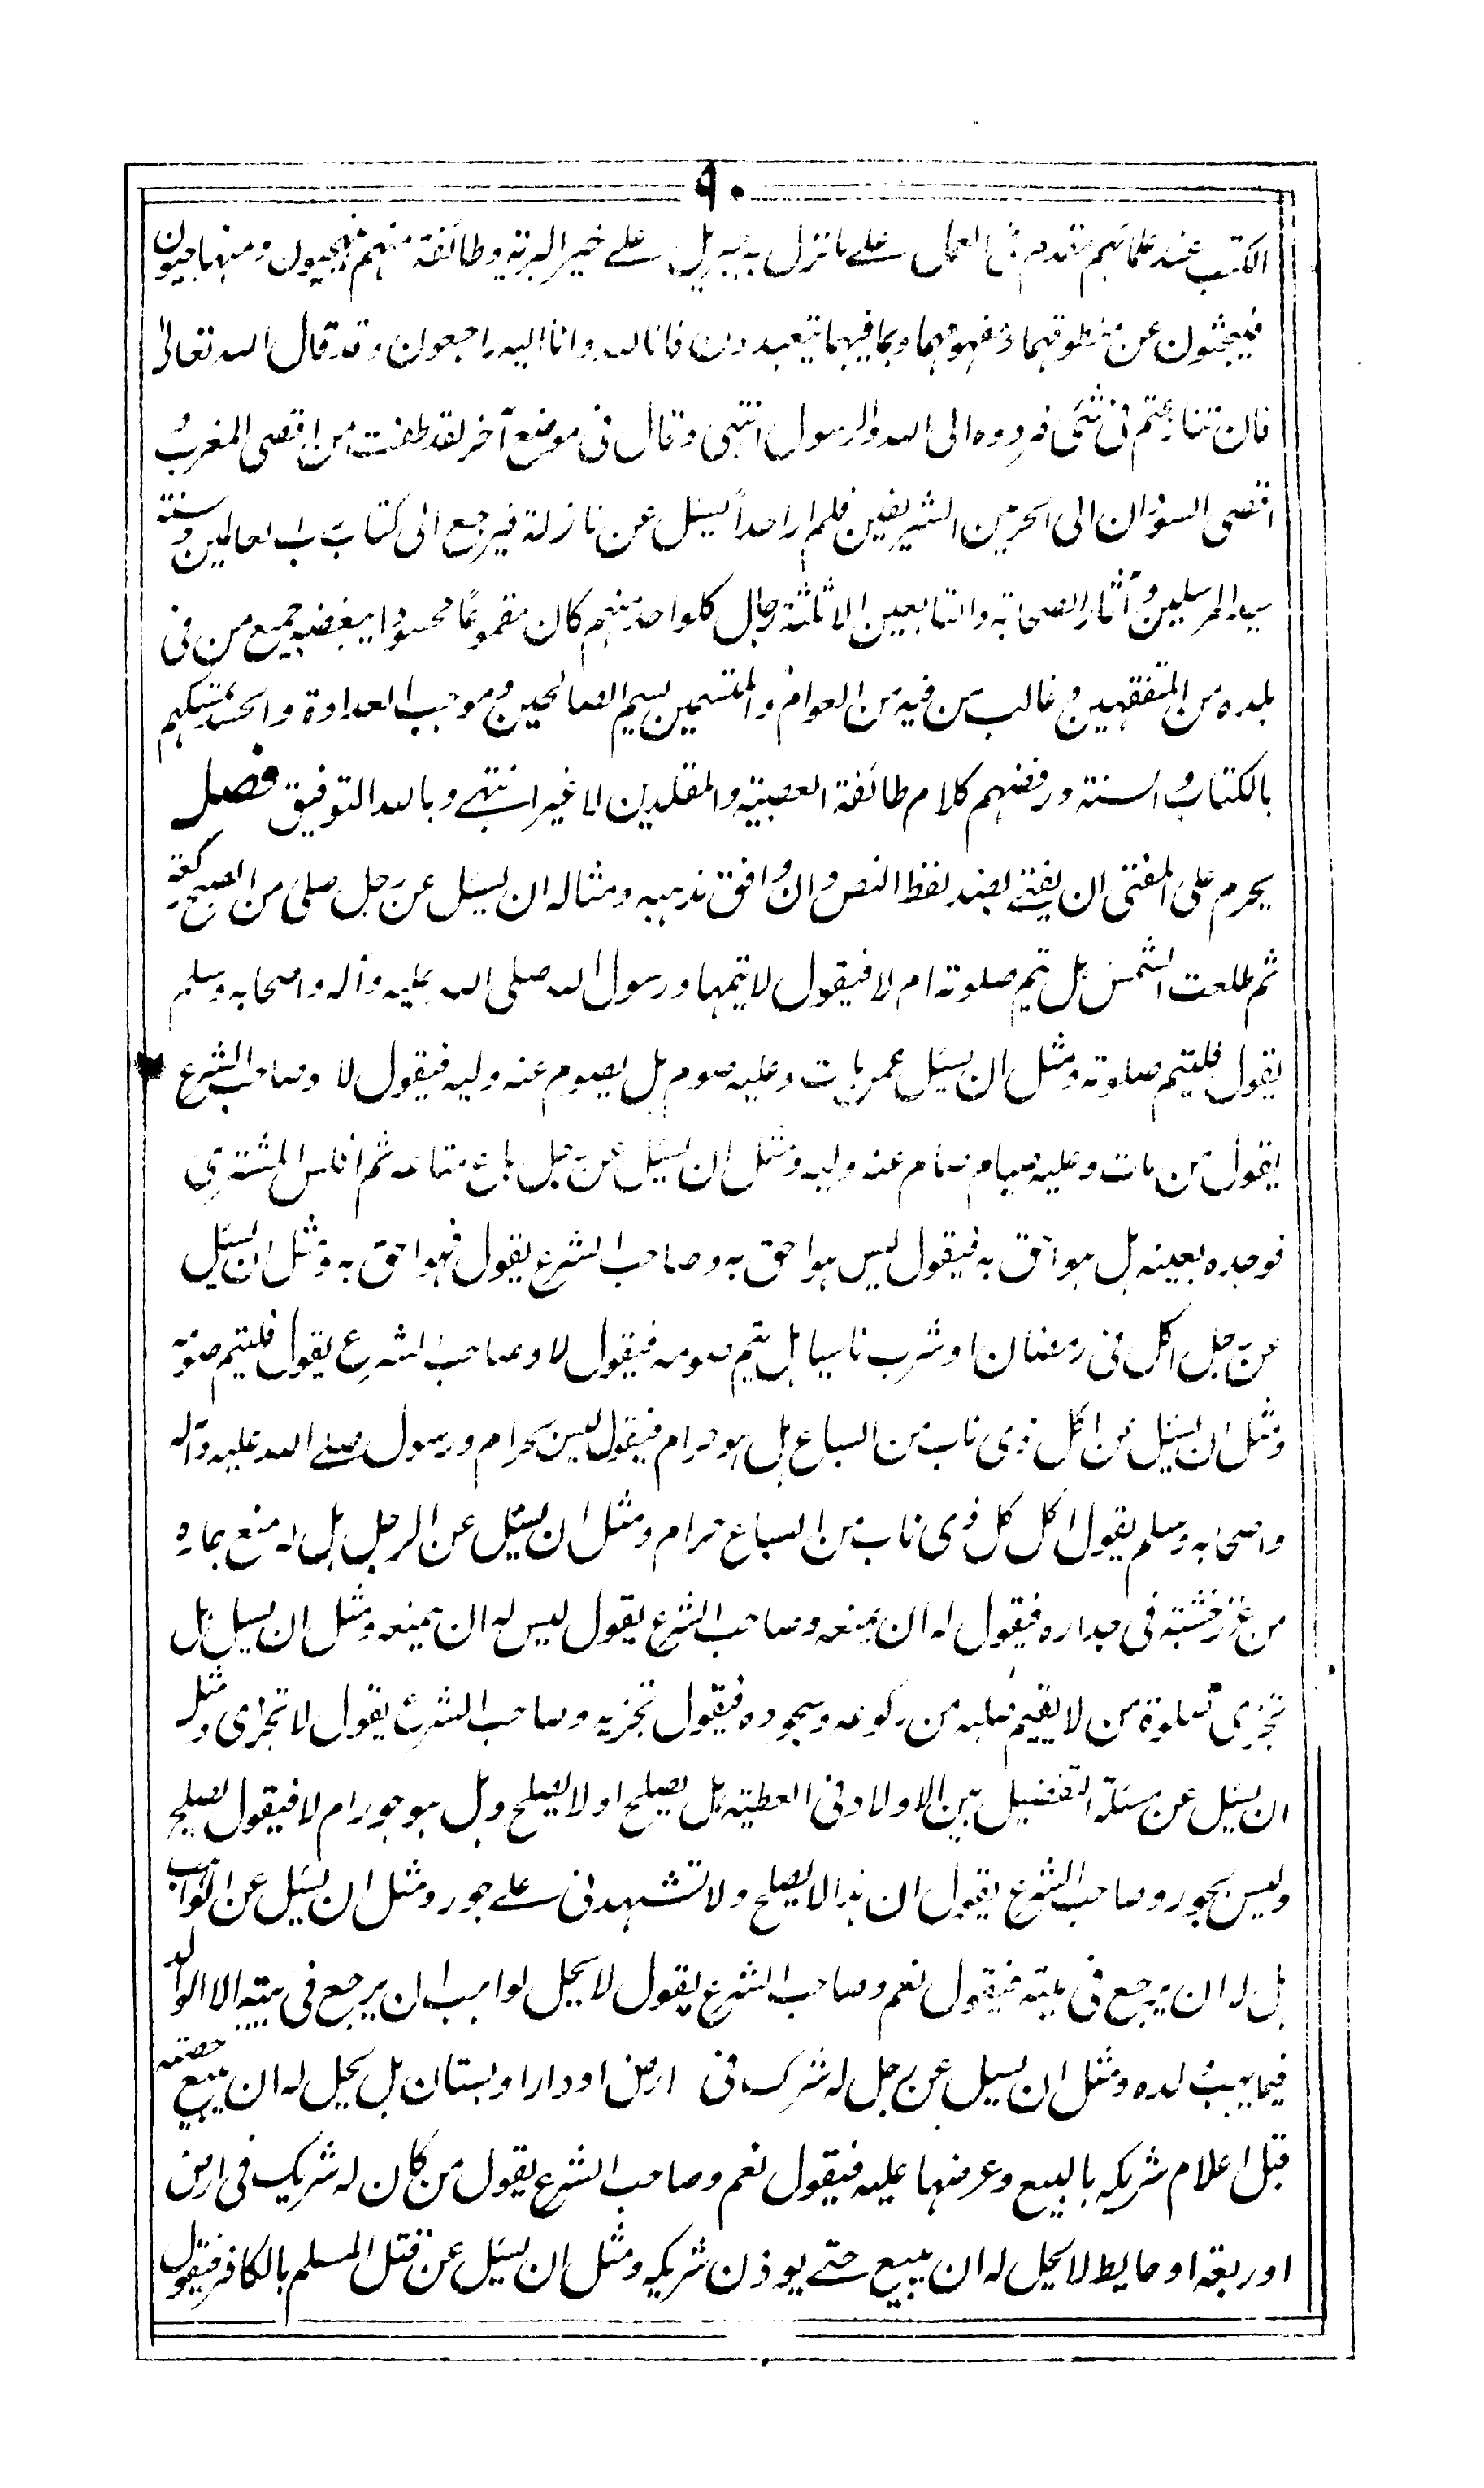 ٩٠
الكتب عند علمائهم مقدم فى العمل على ما نزل به جبريل على خير البرية وطائفة منهم منهجيون ومنهاجيون
فيبحثون عن منطوقهما ومفهومهما وبما فيهما يتعبدون فانا لله وانا اليه راجعون وقد قال الله تعالى
فان تنازعتم فى شئ فردوه الى الله والرسول انتهى وقال فى موضع آخر لقد طفت من اقصى المغرب و
اقصى السودان الى الحرمين الشريفين فلم ار احداً يسئل عن نازلة فيرجع الى كتاب رب العالمين وسنة
سيد المرسلين وآثار الصحابة والتابعين الا ثلثة رجال كل واحد منهم كان مقموعًا محسودا يبغضه جميع من فى
بلده من المتفقهين وغالب من فيه من العوام والمتسمين بسيم الصالحين وموجب العداوة والحسد تمسكهم
بالكتاب والسنة ورفضهم كلام طائفة العصبية والمقلدين لا غير انتهى وبالله التوفيق فصل
يحرم على المفتى ان يفتى بضد لفظ النص وان وافق مذهبه ومثاله ان يسئل عن رجل صلى من الصبح ركعة
ثم طلعت الشمس هل يتم صلوته ام لا فيقول لا يتمها ورسول الله صلى الله عليه وآله واصحابه وسلم
يقول فليتم صلوته ومثل ان يسئل عمن مات وعليه صوم هل يصوم عنه وليه فيقول لا وصاحب الشرع
يقول من مات وعليه صيام صام عنه وليه ومثل ان يسئل عن رجل باع متاعه ثم افلس المشترى
فوجده بعينه هل هو احق به فيقول ليس هو احق به وصاحب الشرع يقول فهو احق به ومثل ان يسئل
عن رجل اكل فى رمضان او شرب ناسيا هل يتم صومه فيقول لا وصاحب الشرع يقول فليتم صومه
ومثل ان يسئل عن اكل ذى ناب من السباع هل هو حرام فيقول ليس بحرام ورسول صلى الله عليه وآله
واصحابه وسلم يقول اكل كل ذى ناب من السباع حرام ومثل ان يسئل عن الرجل هل له منع جاره
من غرز خشبة فى جداره فيقول له ان يمنعه وصاحب الشرع يقول ليس له ان يمنعه ومثل ان يسيل هل
تجزى صلوة من لا يقيم صلبه من ركوعه وسجوده فيقول تجزيه وصاحب الشرع يقول لا تجزى ومثل
ان يسئل عن مسئلة التفضيل بين الاولاد فى العطية هل يصلح او لا يصلح وهل هو جور ام لا فيقول يصلح
وليس بجور وصاحب الشرع يقول ان هذا لا يصلح ولا تشهدنى على جور ومثل ان يسئل عن الواهب
هل له ان يرجع فى هبته فيقول نعم وصاحب الشرع يقول لا يحل لواهب ان يرجع فى هبته الا الوالد
فيما يهب لولده ومثل ان يسيل عن رجل له شرك فى ارض او دار او بستان هل يحل له ان يبيع حصته
قبل اعلام شريكه بالبيع وعرضها عليه فيقول نعم وصاحب الشرع يقول من كان له شريك فى ارض
او ربعة او حايط لا يحل له ان يبيع حتى يوذن شريكه ومثل ان يسئل عن قتل المسلم بالكافر فيقول